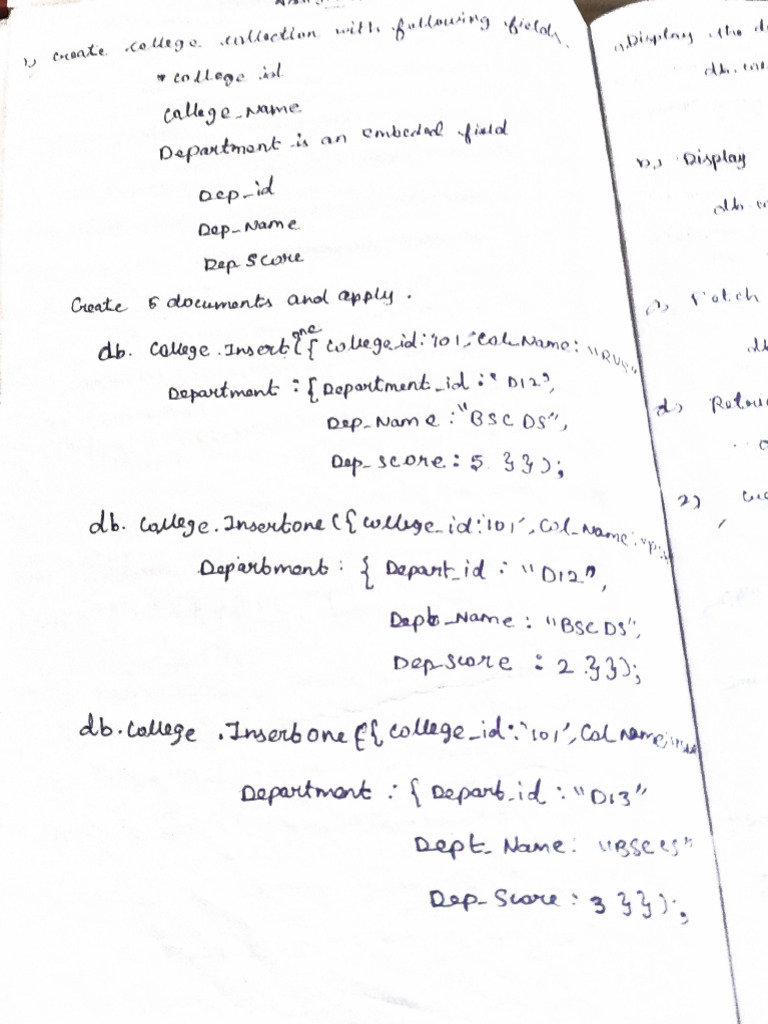 1) create college collection with following fields.
* college id
College_Name
Department is an embeded field
Dep_id
Dep_Name
Dep Score
Create 5 documents and apply.
db. College.Insertone({ college_id:'101', Col_Name: "RVS"
Department : { Department_id : "D12",
Dep_Name : "BSC DS",
Dep_score : 5 }});
db. College.Insertone ({ college_id:'101', Col_Name:
Department : { Depart_id : "D12",
Dept_Name : "BSC DS",
Dep score : 2 }});
db. College .Insertone ({ college_id:'101', Col Name:
Department : { Depart_id : "D13"
Dept_Name: "BSC CS"
Dep_Score : 3 }});
a) Display the
b) Display
c) Fetch
d)
2)